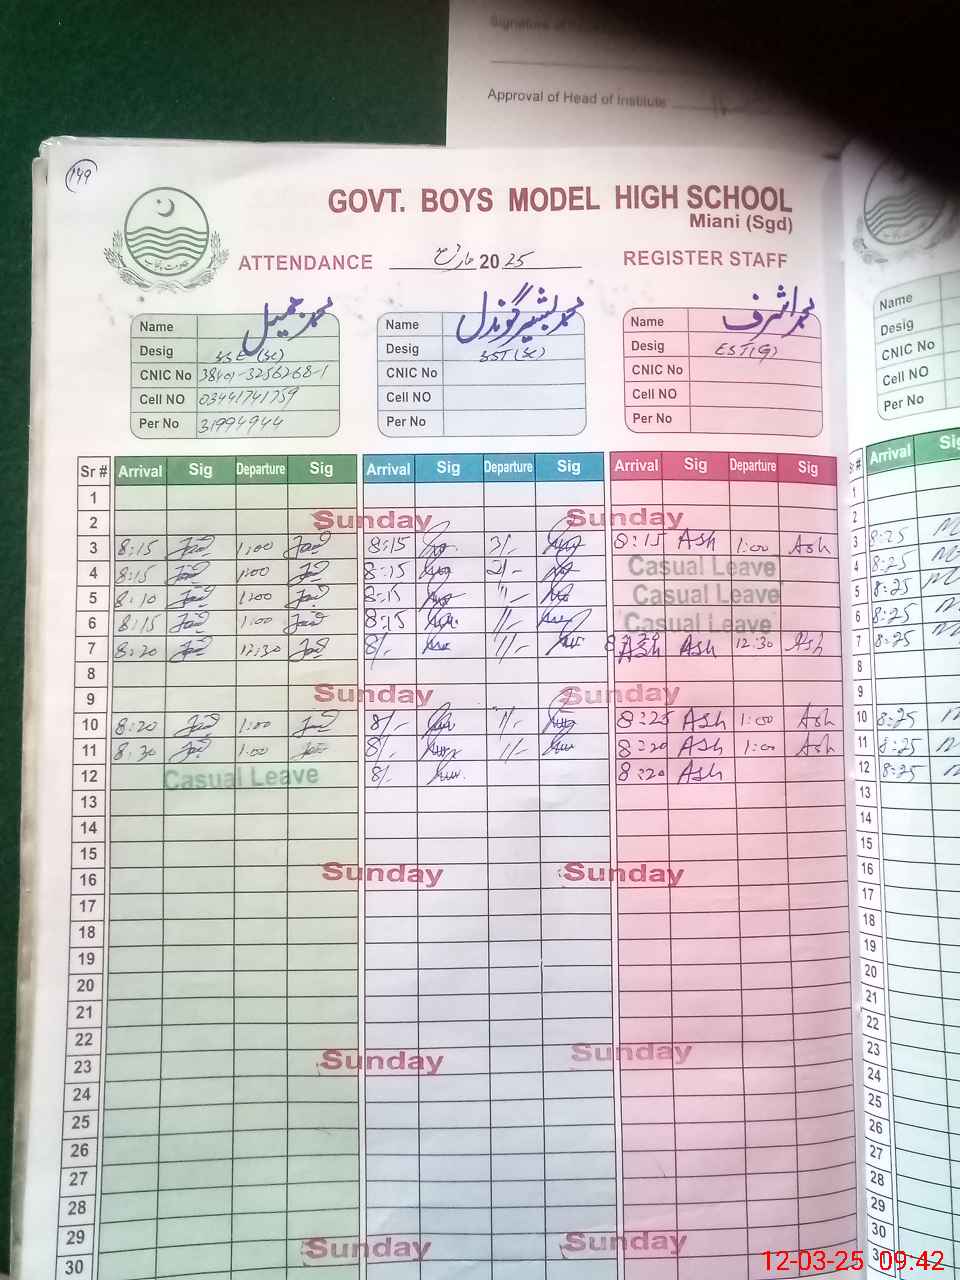 Signature of
Approval of Head of Institute
149
GOVT. BOYS MODEL HIGH SCHOOL
Miani (Sgd)
ATTENDANCE مارچ 2025 REGISTER STAFF
Name محمد جمیل Name محمد بشیر گوندل Name محمد اشرف Name
Desig SSE (SC) Desig SST (SC) Desig EST(G) Desig
CNIC No 38401-3256268-1 CNIC No CNIC No CNIC No
Cell NO 03441741759 Cell NO Cell NO Cell NO
Per No 31994944 Per No Per No Per No
Sr # Arrival Sig Departure Sig Arrival Sig Departure Sig Arrival Sig Departure Sig Sr # Arrival
1 1
2 Sunday Sunday 2
3 8:15 1:00 8:15 8:15 Ash 1:00 Ash 3 8:25
4 8:15 1:00 8:15 Casual Leave 4 8:25
5 8:10 1:00 8:15 Casual Leave 5 8:25
6 8:15 1:00 8:15 Casual Leave 6 8:25
7 8:20 12:30 8/- Ash Ash 12:30 Ash 7 8:25
8 8
9 Sunday Sunday 9
10 8:20 1:00 8/- 8:25 Ash 1:00 Ash 10 8:25
11 8:30 1:00 8/- 8:20 Ash 1:00 Ash 11 8:25
12 Casual Leave 8/- 8:20 Ash 12 8:25
13 13
14 14
15 15
16 Sunday Sunday 16
17 17
18 18
19 19
20 20
21 21
22 22
23 Sunday Sunday 23
24 24
25 25
26 26
27 27
28 28
29 29
30 Sunday Sunday 30
12-03-25 09.42